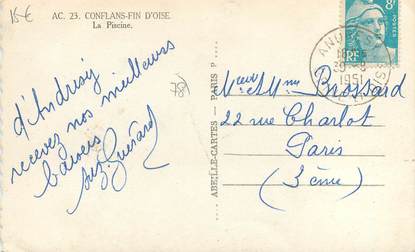 15€
AC. 23. CONFLANS-FIN D'OISE.
La Piscine.
8F
RF
1951
78)
d'Andrésy
recevez nos meilleurs
baisers
Suz. Guérard
ABEILLE-CARTES — PARIS
Mme Brossard
22 rue Charlot
Paris
(3ème)